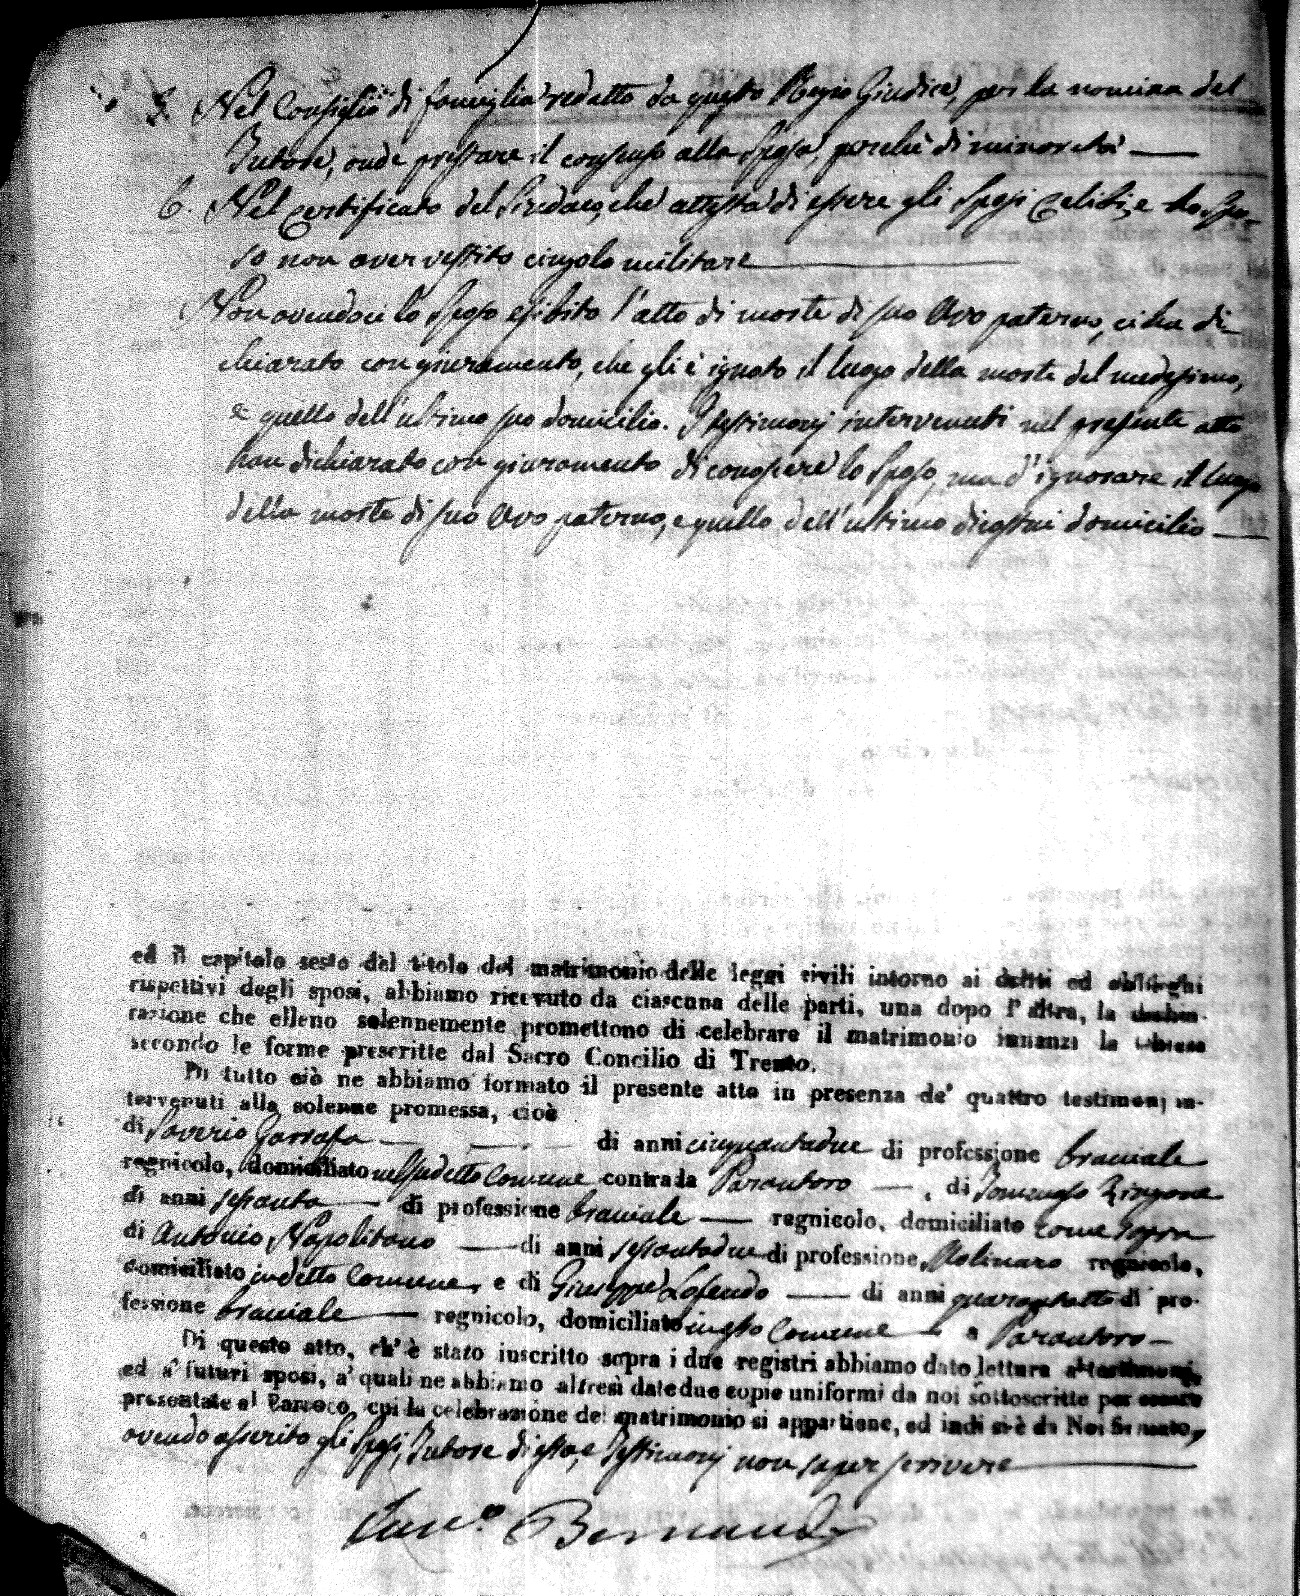 5. Nel Consiglio di famiglia redatto da questo Regio Giudice, per la nomina del
Tutore, onde prestare il consenso alla Sposa, perchè di minor età
6. Nel certificato del Sindaco, che attesta di essere gli Sposi celibi, e lo Spo-
so non aver vestito cingolo militare
Non avendoci lo Sposo esibito l'atto di morte di suo Avo paterno, ci ha di-
chiarato con giuramento, che gli è ignoto il luogo della morte del medesimo,
e quello dell'ultimo suo domicilio. I testimonj intervenuti nel presente atto
han dichiarato con giuramento di conoscere lo Sposo, ma d'ignorare il luogo
della morte di suo Avo paterno, e quello dell'ultimo di costui domicilio
ed il capitolo sesto del titolo del matrimonio delle leggi civili intorno ai dritti ed obblighi
rispettivi degli sposi, abbiamo ricevuto da ciascuna delle parti, una dopo l'altra, la dichia-
razione che elleno solennemente promettono di celebrare il matrimonio innanzi la Chiesa
secondo le forme prescritte dal Sacro Concilio di Trento.
Di tutto ciò ne abbiamo formato il presente atto in presenza de' quattro testimonj in-
tervenuti alla solenne promessa, cioè
di Saverio Garrafa di anni cinquantadue di professione bracciale
regnicolo, domiciliato nel sudetto Comune contrada Parautoro, di Domenico
di anni sessanta di professione bracciale regnicolo, domiciliato come sopra
di Antonio Napolitano di anni sessantadue di professione Molinaro regnicolo,
domiciliato in detto Comune, e di Giuseppe di anni quarantotto di pro-
fessione bracciale regnicolo, domiciliato in q.sto Comune a Parautoro
Di questo atto, ch'è stato inscritto sopra i due registri abbiamo dato lettura a' testimonj,
ed a' futuri sposi, a' quali ne abbiamo altresì date due copie uniformi da noi sottoscritte per essere
presentate al Parroco, cui la celebrazione del matrimonio si appartiene, ed indi si è da Noi firmato,
avendo asserito gli Sposi, Tutore di essa, e Testimonj non saper scrivere